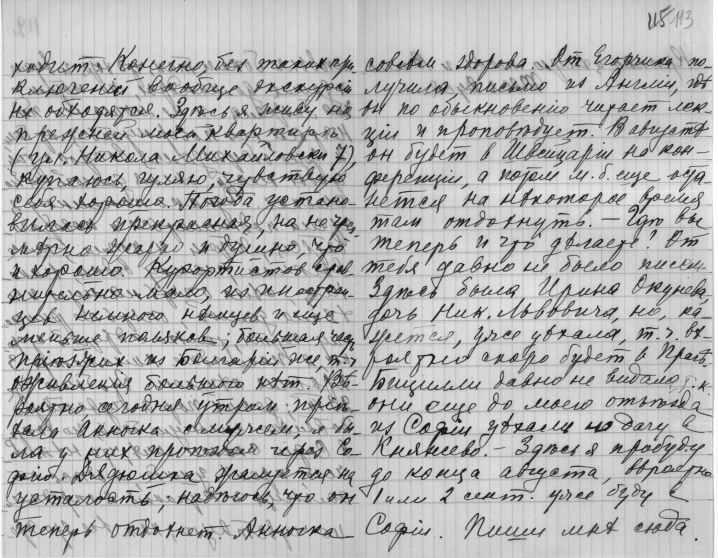 115 113
ходит. Конечно, без таких при-
ключений вообще экскурсий
не обходятся. Здесь я живу на
прежней моей квартире
(ул. Никола Михайловски 7),
купаюсь, гуляю, чувствую
себя хорошо. Погода устано-
вилась прекрасная, на
жарко и душно, что
и хорошо. Курортистов срав-
нительно мало, из иностран-
цев немного немцев и еще
меньше поляков, большая часть
приезжих из Болгарии же, т. ч.
оживления большого нѣт. Вѣ-
роятно сегодня утром прiѣ-
хала Анночка с мужем, я бы-
ла у них проездом через Со-
фию. Дядюшка жалуется на
усталость, надѣюсь, что он
теперь отдохнет. Анночка
совсем здорова. От Егорчика по-
лучила письмо из Англiи, гдѣ
он по обыкновенiю читает лек-
цiи и проповѣдует. В августѣ
он будет в Швейцарiи на кон-
ференцiи, а потом м. б. еще оста-
нется на нѣкоторое время
там отдохнуть. — Что вы
теперь и что дѣлаете? От
тебя давно не было писем.
Здѣсь была Ирина Окунева,
дочь Ник. Львовича, но, ка-
жется, уже уѣхала, т. ч. вѣ-
роятно скоро будет в Прагѣ.
Бицилли давно не видала, т. к.
они еще до моего отъѣзда
из Софiи уѣхали на дачу в
Княжево. — Здѣсь я пробуду
до конца августа, вѣроятно
1 или 2 сент. уже буду в
Софiи. Пиши мнѣ сюда.